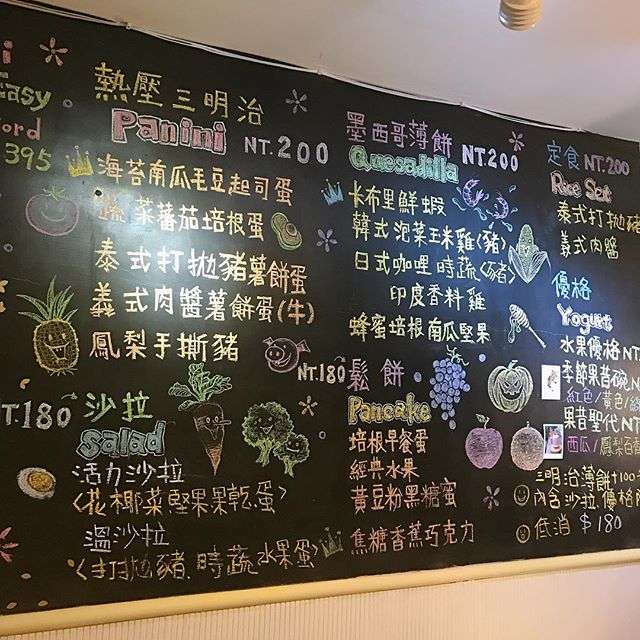 i
Easy
ord
395
熱壓三明治
Panini NT.200
海苔南瓜毛豆起司蛋
蔬菜蕃茄培根蛋
泰式打拋豬薯餅蛋
義式肉醬薯餅蛋(牛)
鳳梨手撕豬
NT180 沙拉
Salad
活力沙拉
(花椰菜堅果果乾.蛋)
溫沙拉
(打拋豬.時蔬水果蛋)
墨西哥薄餅
Quesadilla NT200
卡布里鮮蝦
韓式泡菜玉米雞(豬)
日式咖哩時蔬(豬)
印度香料雞
蜂蜜培根南瓜堅果
NT.180 鬆餅
Pancake
培根早餐蛋
經典水果
黃豆粉黑糖蜜
焦糖香蕉巧克力
定食 NT.200
Rice Set
泰式打拋豬
義式肉醬
優格
Yogurt
水果優格 NT
季節果昔碗 N
紅色/黃色/
果昔聖代 NT
西瓜/鳳梨百
三明治薄餅+100
內含沙拉.優格
低消 $180